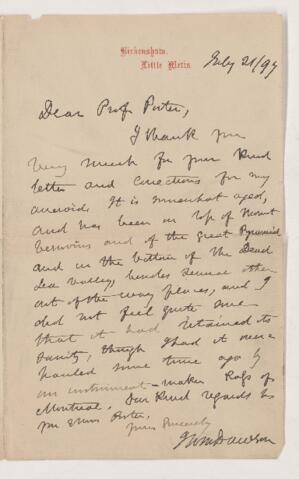 Birkenshaw.
Little Metis.
July 21/97
Dear Prof. Porter,
I thank you
very much for your kind
letter and corrections for my
aneroid. It is somewhat aged,
and has been on top of Mount
Vesuvius and of the Great Pyramid
and in the bottom of the Dead
Sea valley, besides several other
out of the way places, and I
did not feel quite sure
that it had retained its
sanity, though I had it over-
hauled some time ago by
an instrument-maker of
Montreal. Our kind regards to
you & Mrs Porter.
Yours Sincerely
J Wm Dawson